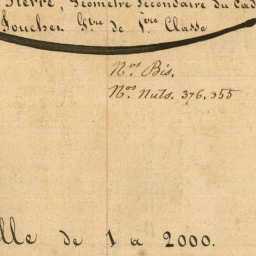 Pierre, Géomètre Secondaire du Cad
Foucher G.tre de 1.ere Classe
N.os Bis.
N.os Nuls. 376. 355
lle de 1 a 2000.